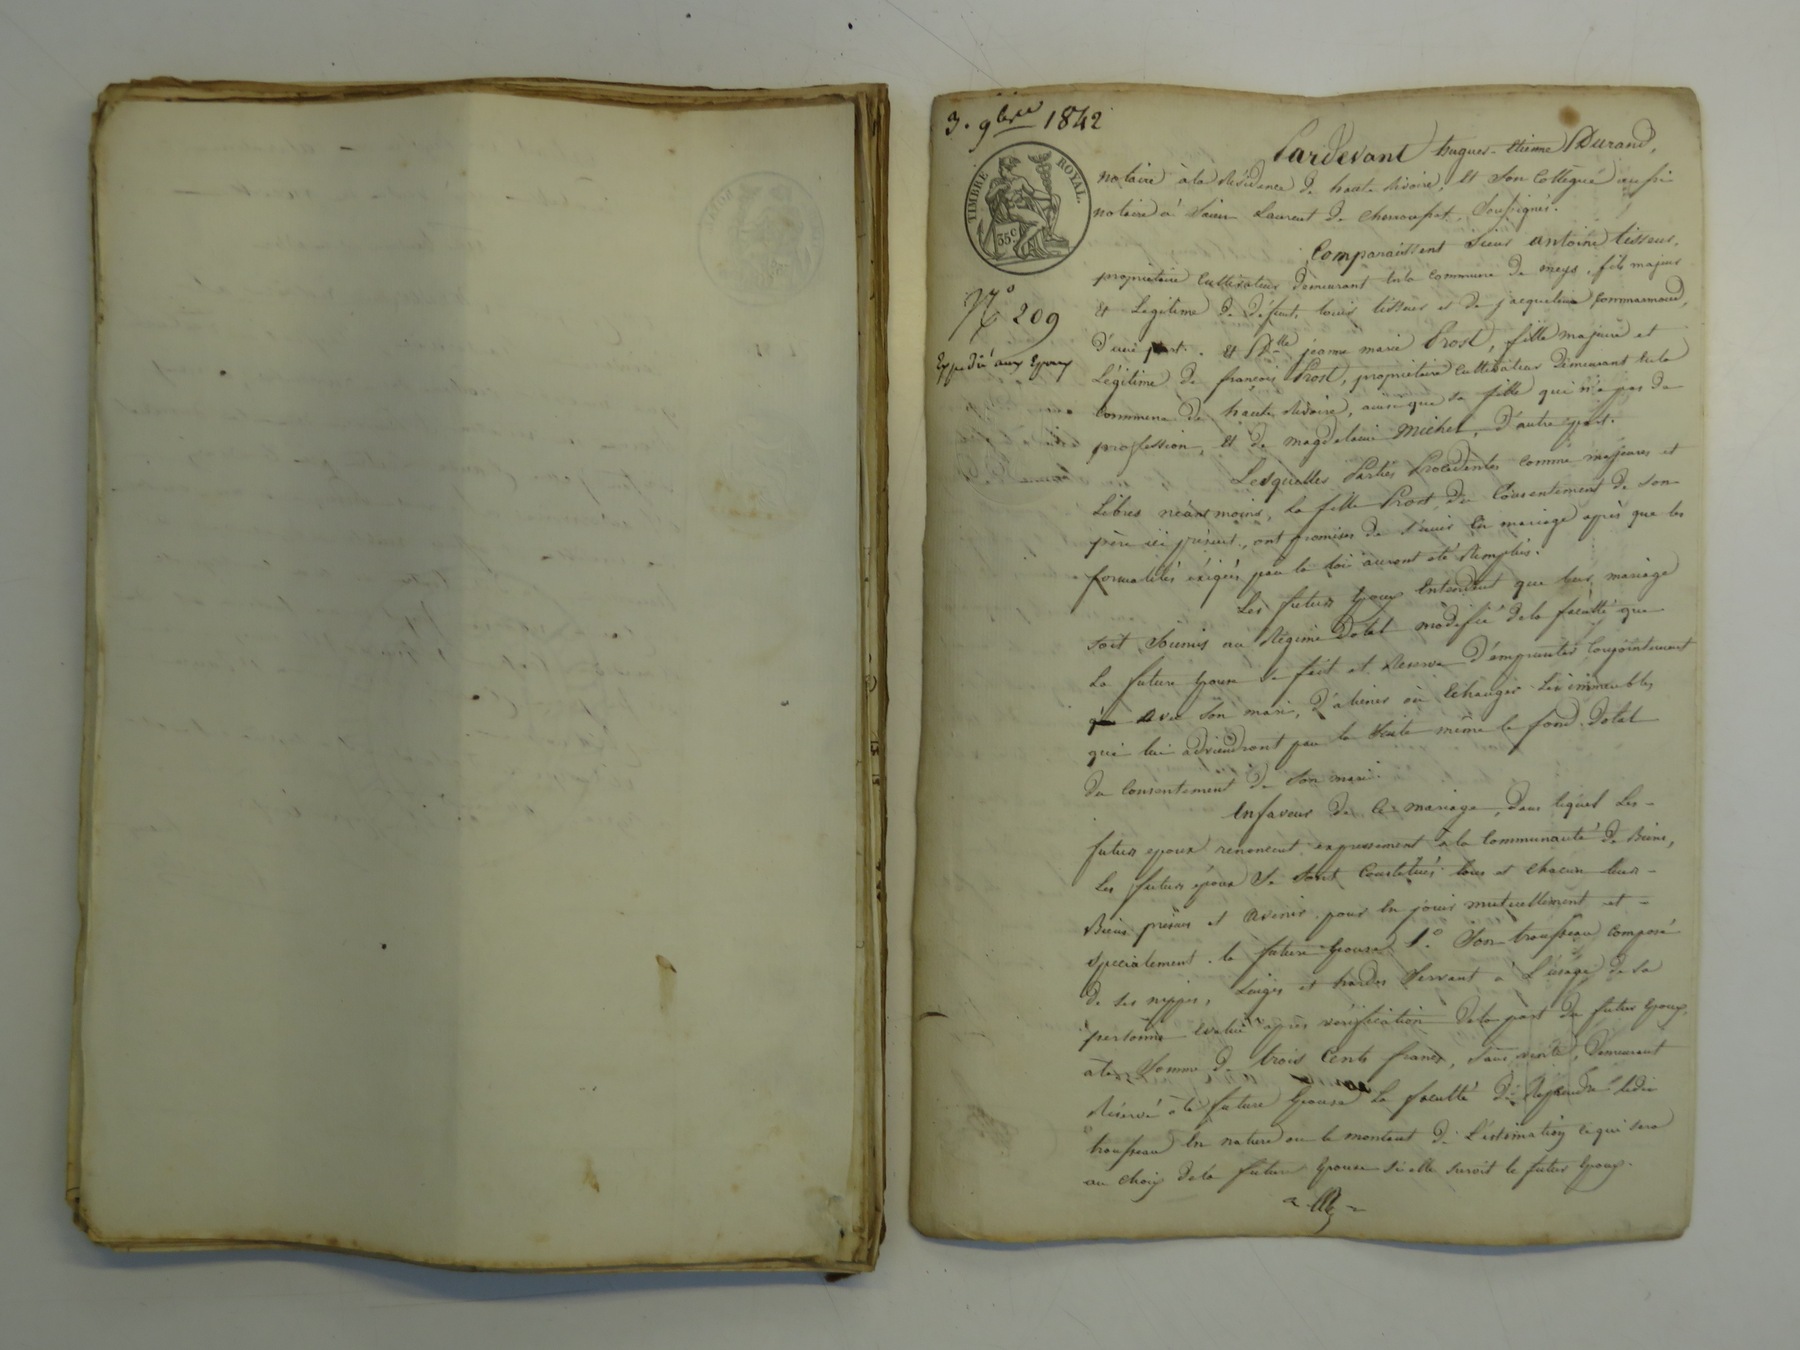 3. 9bre 1842
TIMBRE ROYAL.
35c
No 209
Expedié aux Epoux
Pardevant hugues-Etienne Durand,
notaire à la Résidence de haute Rivoire, et Son Collégue aussi
notaire à Saint Laurent de Chamousset, Soussignés.
Comparaissent Sieur antoine tisseur,
propriétaire Cultivateur demeurant en la commune de meys, fils majeur
et Légitime de défunt louis tisseur et de jacqueline
d'une part. et Dlle jeanne marie Prost, fille majeure et
Légitime de françois Prost, propriétaire Cultivateur demeurant en la
commune de haute Rivoire, ainsi que sa fille qui n'a pas de
profession, et de magdelaine Michel, d'autre part.
Lesquelles Parties Procédentes comme majeures et
Libres néanmoins, la fille Prost, du Consentement de son
père ici présent, ont promises de s'unir En mariage après que les
formalités éxigées par la Loi auront été Remplies.
Les futurs Epoux Entendent que leur mariage
soit Soumis au Régime Dotal modifié de la faculté que
La future Epouse se fait et Réserve d'emprunter Conjointement
avec Son mari, d'aliener ou Echanger les immeubles
qui lui adviendront par la Suite même le fond Dotal
du Consentement de Son mari.
En faveur de Ce mariage, dans lequel Les
futurs epoux renoncent expressement à la Communauté de Biens,
Les futurs époux Se Sont Constitués tous et Chacun leurs
Biens présens et Avenir pour En jouir mutuellement et
Spécialement la future Epouse 1.° Son trousseau Composé
de ses nippes, Linges et hardes Servant à L'usage de Sa
personne Evalué après vérification de la part du futur Epoux,
à la Somme de trois Cents francs, Sans vente, Demeurant
Réservé à la future Epouse La faculté de Reprendre Ledit
trousseau En nature ou le montant de L'estimation Ce qui Sera
au Choix de la future Epouse si elle survit le futur Epoux.